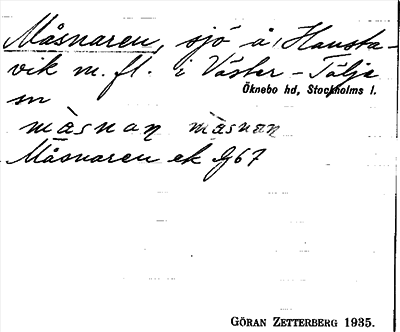 Måsnaren, sjö å Hausta-
vik m. fl. i Väster-Tälje
sn
Öknebo hd, Stockholms l.
màsnan màsnan
Måsnaren ek G67
GÖRAN ZETTERBERG 1935.